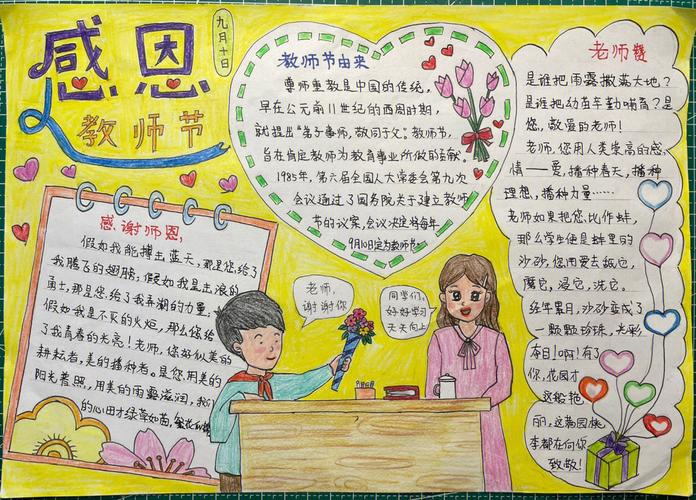 感恩
教师节
九月十日
教师节由来
尊师重教是中国的传统,
早在公元前11世纪的西周时期,
就提出“弟子事师,敬同于父”。教师节,
旨在肯定教师为教育事业所做的贡献。
1985年,第六届全国人大常委会第九次
会议通过了国务院关于建立教师
节的议案,会议决定将每年
9月10日定为教师节
老师赞
是谁把雨露撒满大地?
是谁把幼苗辛勤哺育?是
您,敬爱的老师!
老师,您用人类崇高的感
情——爱,播种春天,播种
理想,播种力量……
老师如果把您比作蚌,
那么学生便是蚌里的
沙砂,您用爱去舐它,
磨它,浸它,洗它。
经年累月,沙砂变成了
一颗颗珍珠,光彩
夺目!啊!有了
你,花园才
这般艳
丽,这满园桃
李都在向你
致敬!
感谢师恩,
假如我能搏击蓝天,那是您给了
我腾飞的翅膀,假如我是击浪的
勇士,那是您给了我弄潮的力量,
假如我是不灭的火炬,那么您给
了我青春的光亮!老师,您好似美的
耕耘者,美的播种者。是您用美的
阳光普照,用美的雨露滋润,我们
的心田才绿草如茵,繁花似锦
老师,
谢谢你
同学们,
好好学习
天天向上